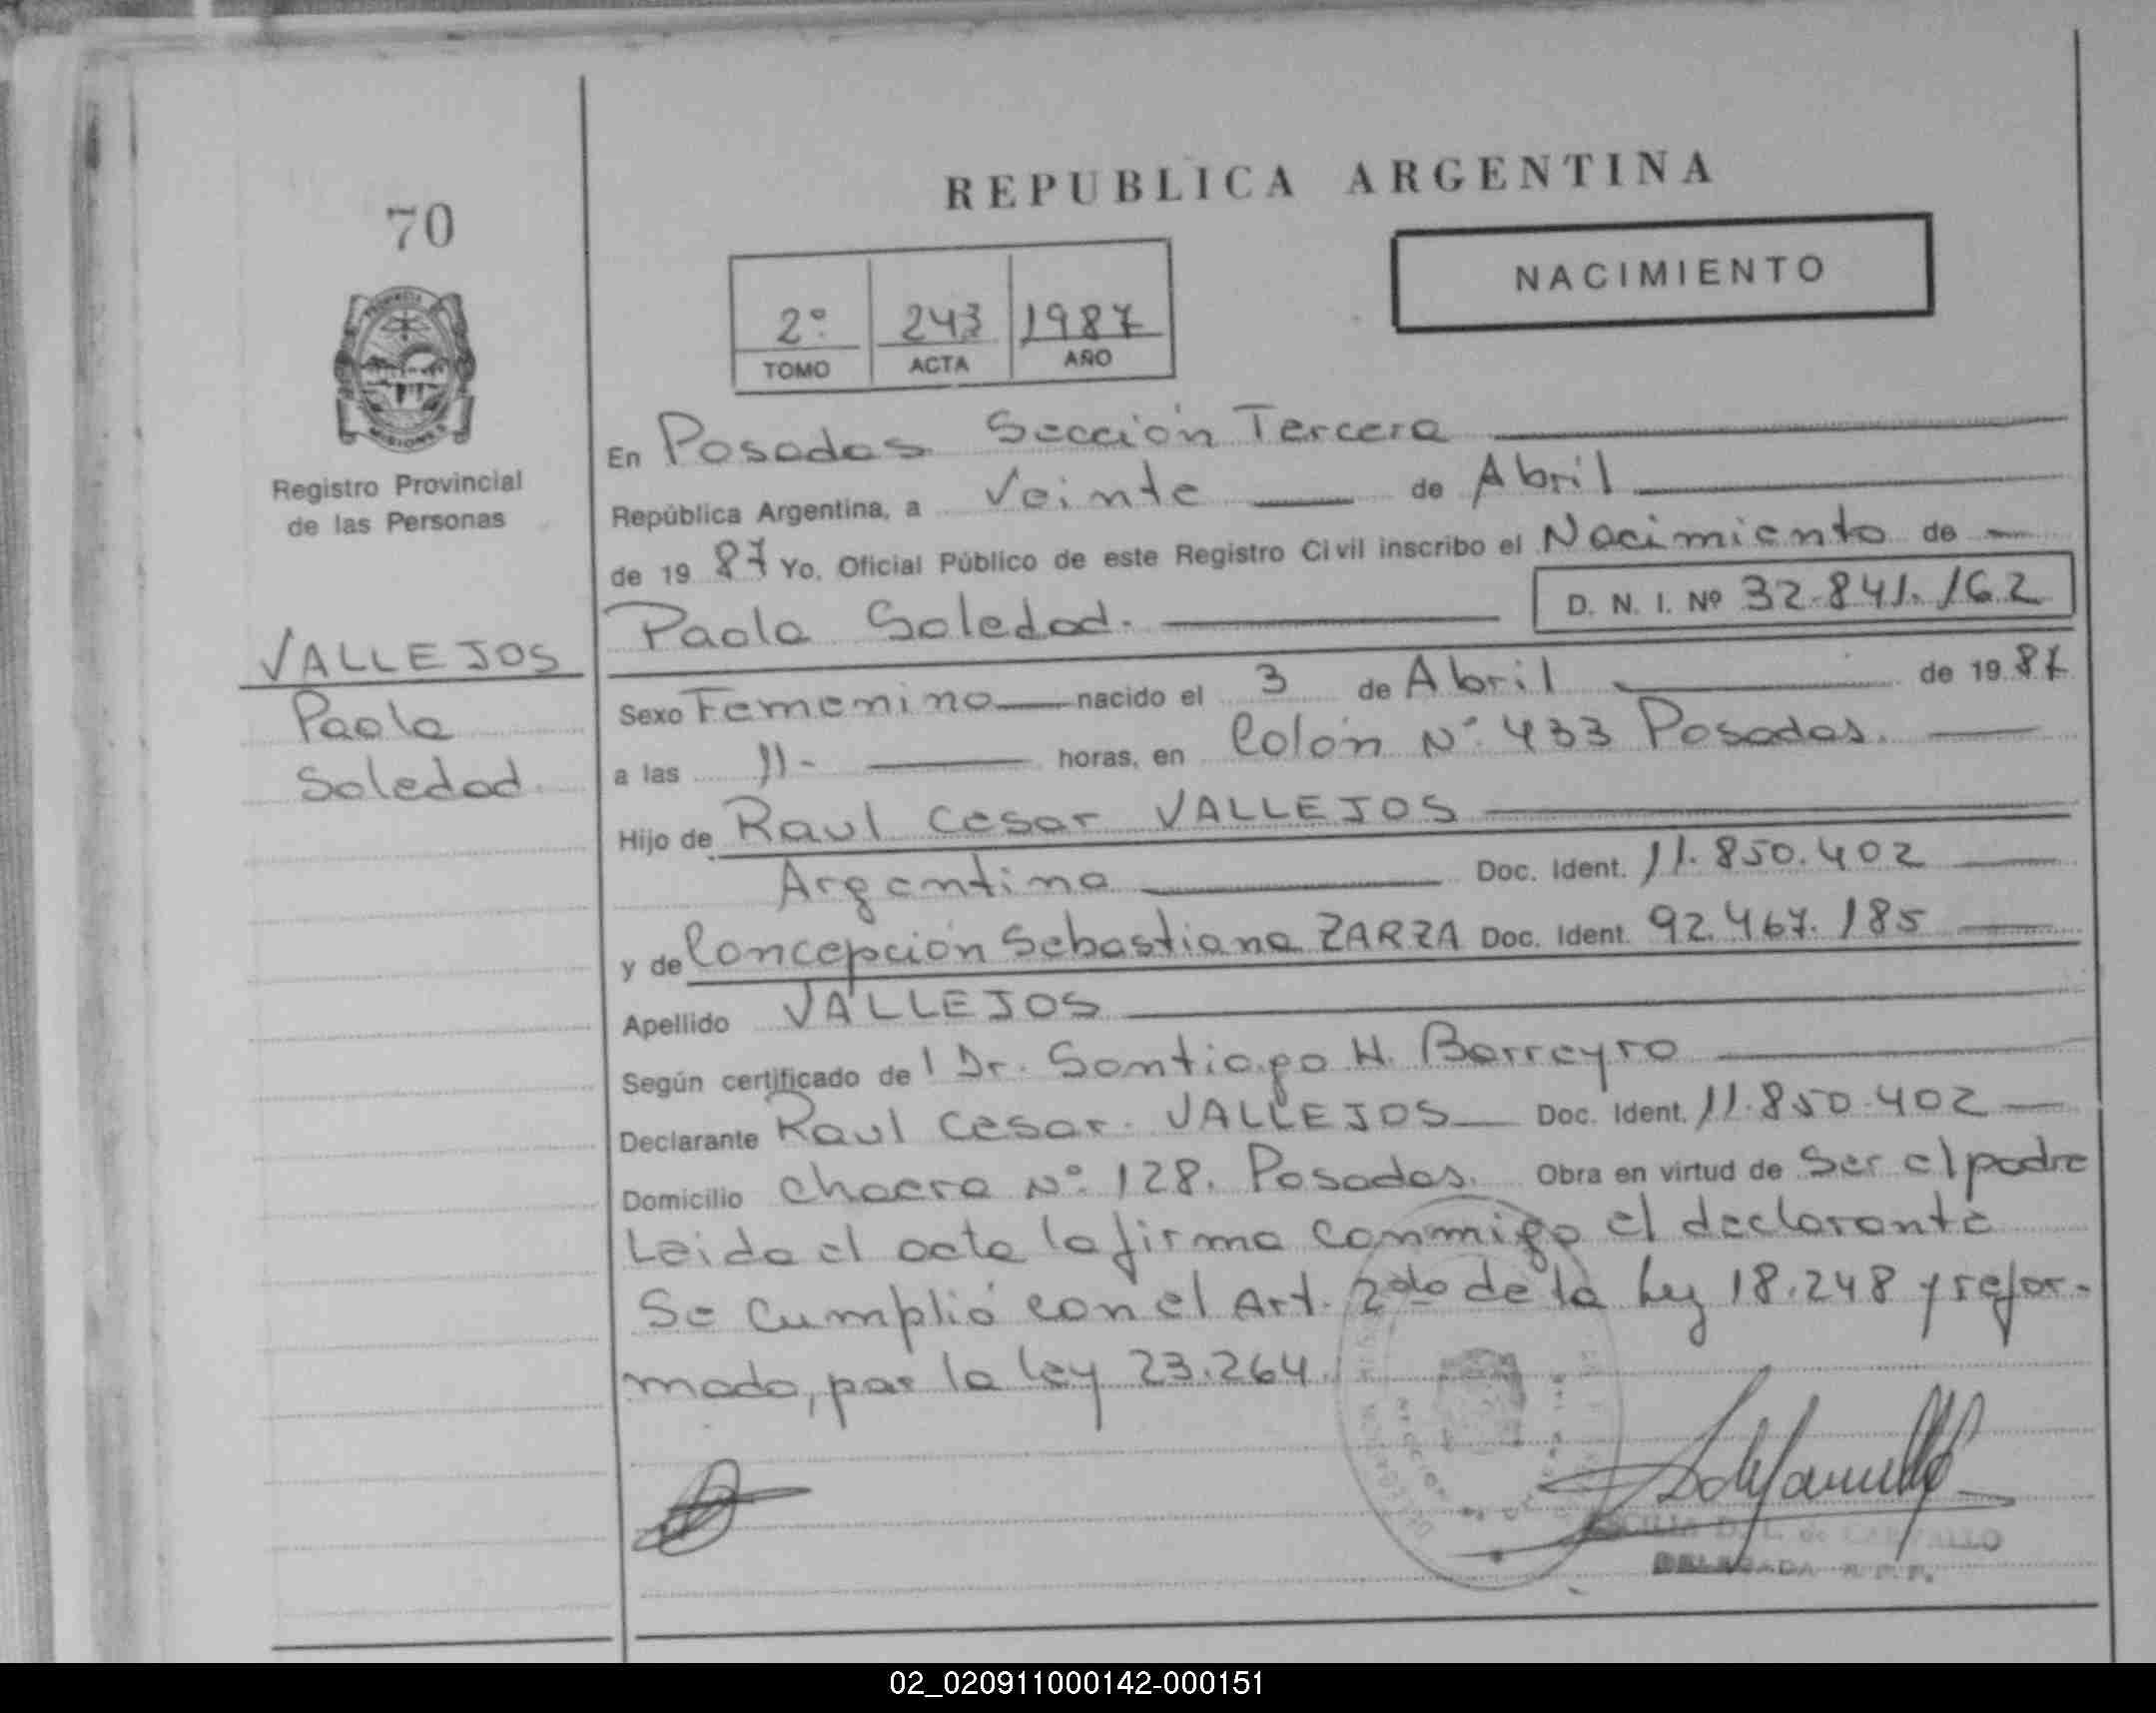 70
Registro Provincial
de las Personas
VALLEJOS
Paola
Soledad.
REPUBLICA ARGENTINA
NACIMIENTO
2º 243 1987
TOMO ACTA AÑO
En Posadas Sección Tercera
República Argentina, a Veinte de Abril
de 19 87 Yo, Oficial Público de este Registro Civil inscribo el Nacimiento de
Paola Soledad. D. N. I. Nº 32.841.162
Sexo Femenino nacido el 3 de Abril de 19 87
a las 11- horas, en Colón Nº 433 Posadas.
Hijo de Raul Cesar VALLEJOS
Argentina Doc. Ident. 11.850.402
y de Concepción Sebastiana ZARZA Doc. Ident. 92.467.185
Apellido VALLEJOS
Según certificado de l Dr. Santiago H. Barreyro
Declarante Raul Cesar VALLEJOS Doc. Ident. 11.850.402
Domicilio Chacra Nº 128. Posadas. Obra en virtud de Ser el padre
Leida el acta la firma conmigo el declarante
Se Cumplió con el Art. 2do de la Ley 18.248 y refor-
mada, por la ley 23.264.
DELEGADA R. P. P.
02_020911000142-000151